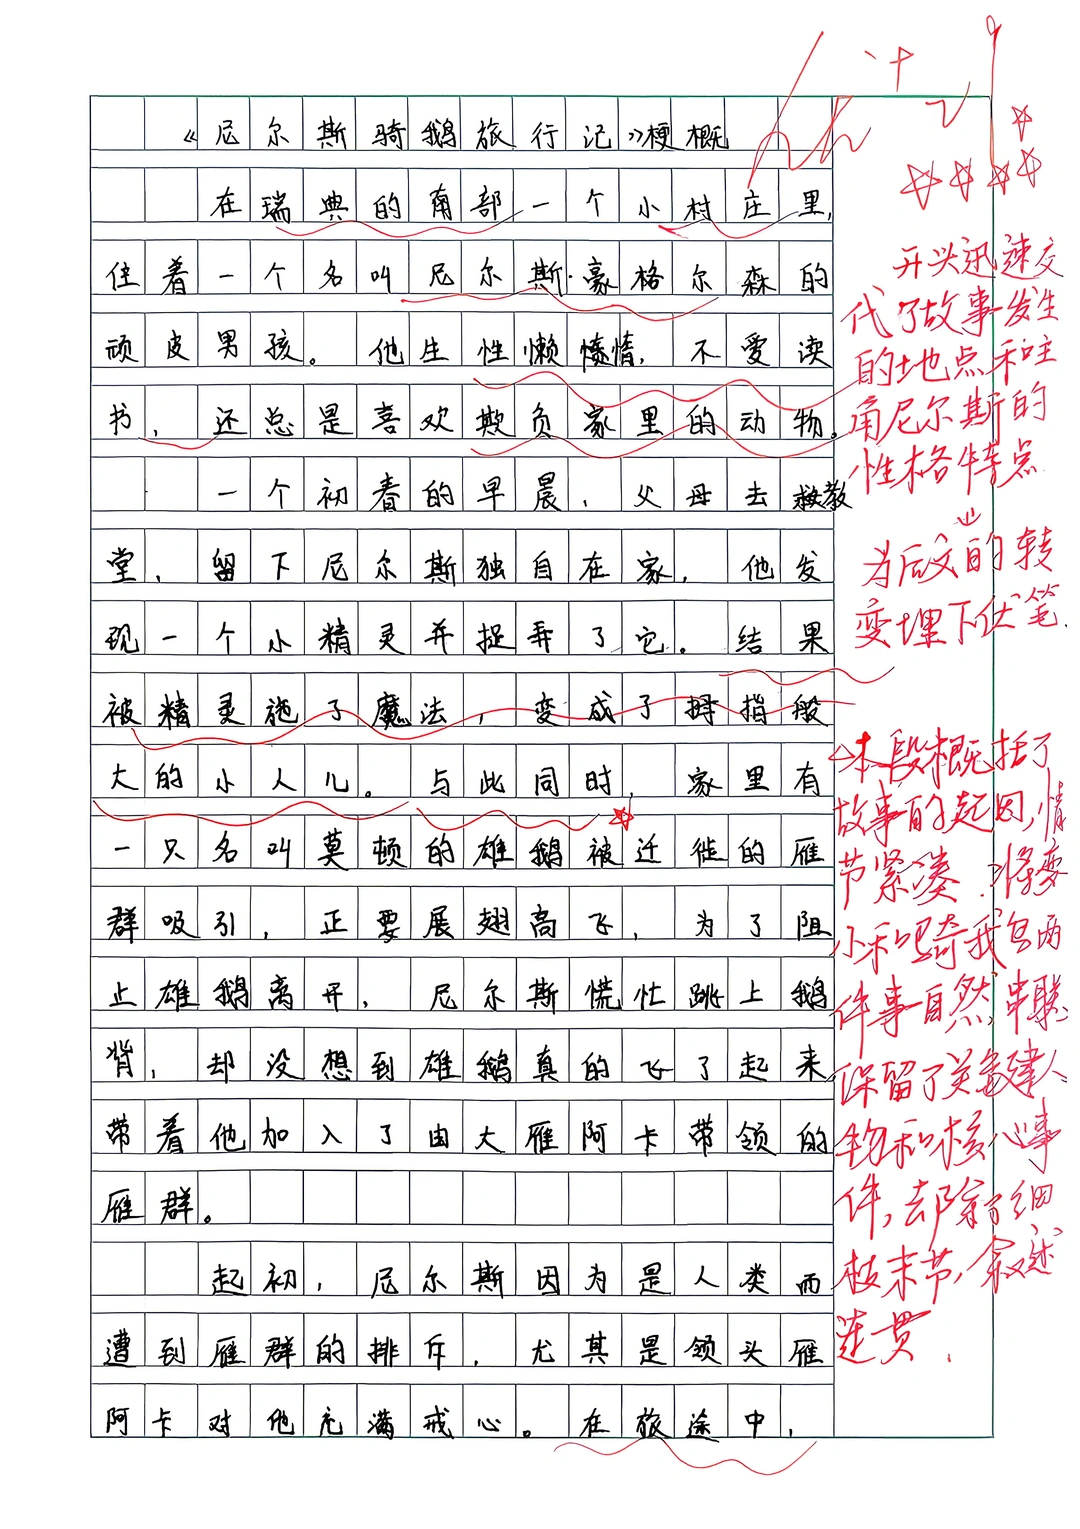 《尼尔斯骑鹅旅行记》梗概
在瑞典的南部一个小村庄里,
住着一个名叫尼尔斯·豪格尔森的
顽皮男孩。他生性懒惰,不爱读
书,还总是喜欢欺负家里的动物。
一个初春的早晨,父母去教
堂,留下尼尔斯独自在家,他发
现一个小精灵并捉弄了它。结果
被精灵施了魔法,变成了拇指般
大的小人儿。与此同时,家里有
一只名叫莫顿的雄鹅被迁徙的雁
群吸引,正要展翅高飞,为了阻
止雄鹅离开,尼尔斯慌忙跳上鹅
背,却没想到雄鹅真的飞了起来
带着他加入了由大雁阿卡带领的
雁群。
起初,尼尔斯因为是人类而
遭到雁群的排斥,尤其是领头雁
阿卡对他充满戒心。在旅途中,
开头迅速交
代了故事发生
的地点和主
角尼尔斯的
性格特点
为后文的转
变埋下伏笔.
本段概括了
故事的起因,情
节紧凑.将变
小和骑鹅两
件事自然串联,
保留了关键人
物和核心事
件,去除了细
枝末节,叙述
连贯.